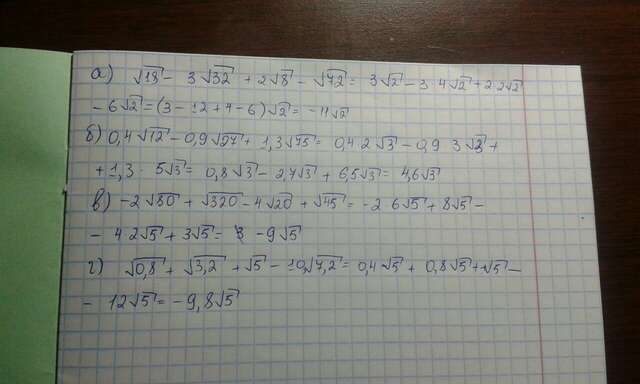 а) √18 - 3√32 + 2√8 - √72 = 3√2 - 3·4√2 + 2·2√2
- 6√2 = (3 - 12 + 4 - 6)√2 = -11√2
б) 0,4√12 - 0,9√27 + 1,3√75 = 0,4·2√3 - 0,9·3√3 +
+ 1,3 · 5√3 = 0,8√3 - 2,7√3 + 6,5√3 = 4,6√3
в) -2√80 + √320 - 4√20 + √45 = -2·6√5 + 8√5 -
- 4·2√5 + 3√5 = -9√5
г) √0,8 + √3,2 + √5 - 10√7,2 = 0,4√5 + 0,8√5 + √5 -
- 12√5 = -9,8√5